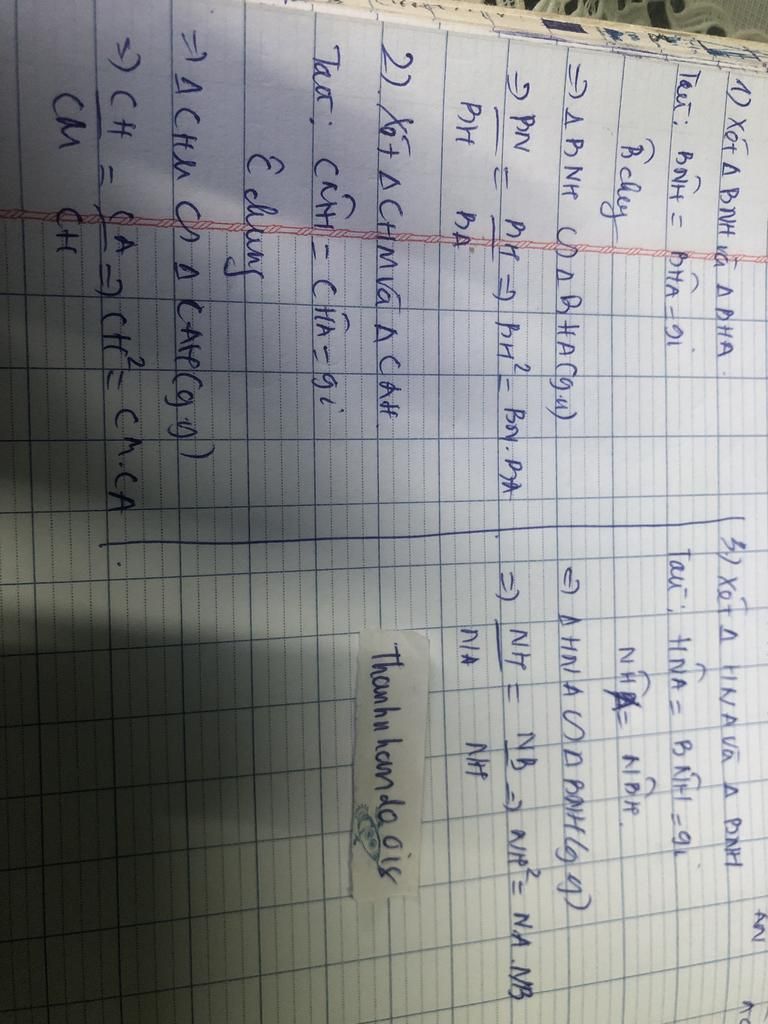 1) Xét Δ BNH và Δ BHA.
Ta có: BN̂H = BĤA = 9i
B̂ chg
=> Δ BNH ᔕ Δ BHA (g.g)
=> BN/BH = BH/BA => BH² = BN.BA
2) Xét Δ CHM và Δ CAH.
Ta có: CM̂H = CĤA = 9i
Ĉ chung
=> Δ CHM ᔕ Δ CAH (g.g)
=> CH/CM = CA/CH => CH² = CM.CA
3) Xét Δ HNA và Δ BNH
Ta có: HN̂A = BN̂H = 9i
NĤA = NB̂H.
=> Δ HNA ᔕ Δ BNH (g.g)
=> NH/NA = NB/NH => NH² = NA.NB
Thanhnhandao18
AN